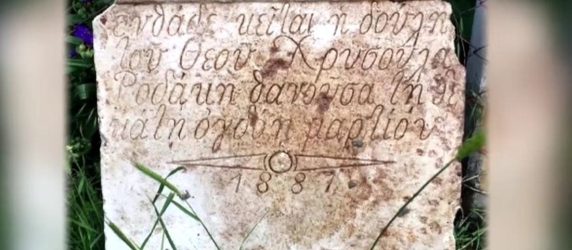 ἐνθάδε κεῖται ἡ δούλη
τοῦ Θεοῦ Χρυσούλα
Ροδάκη θανοῦσα τῇ δε
κάτῃ ὀγδόῃ μαρτίου
1887